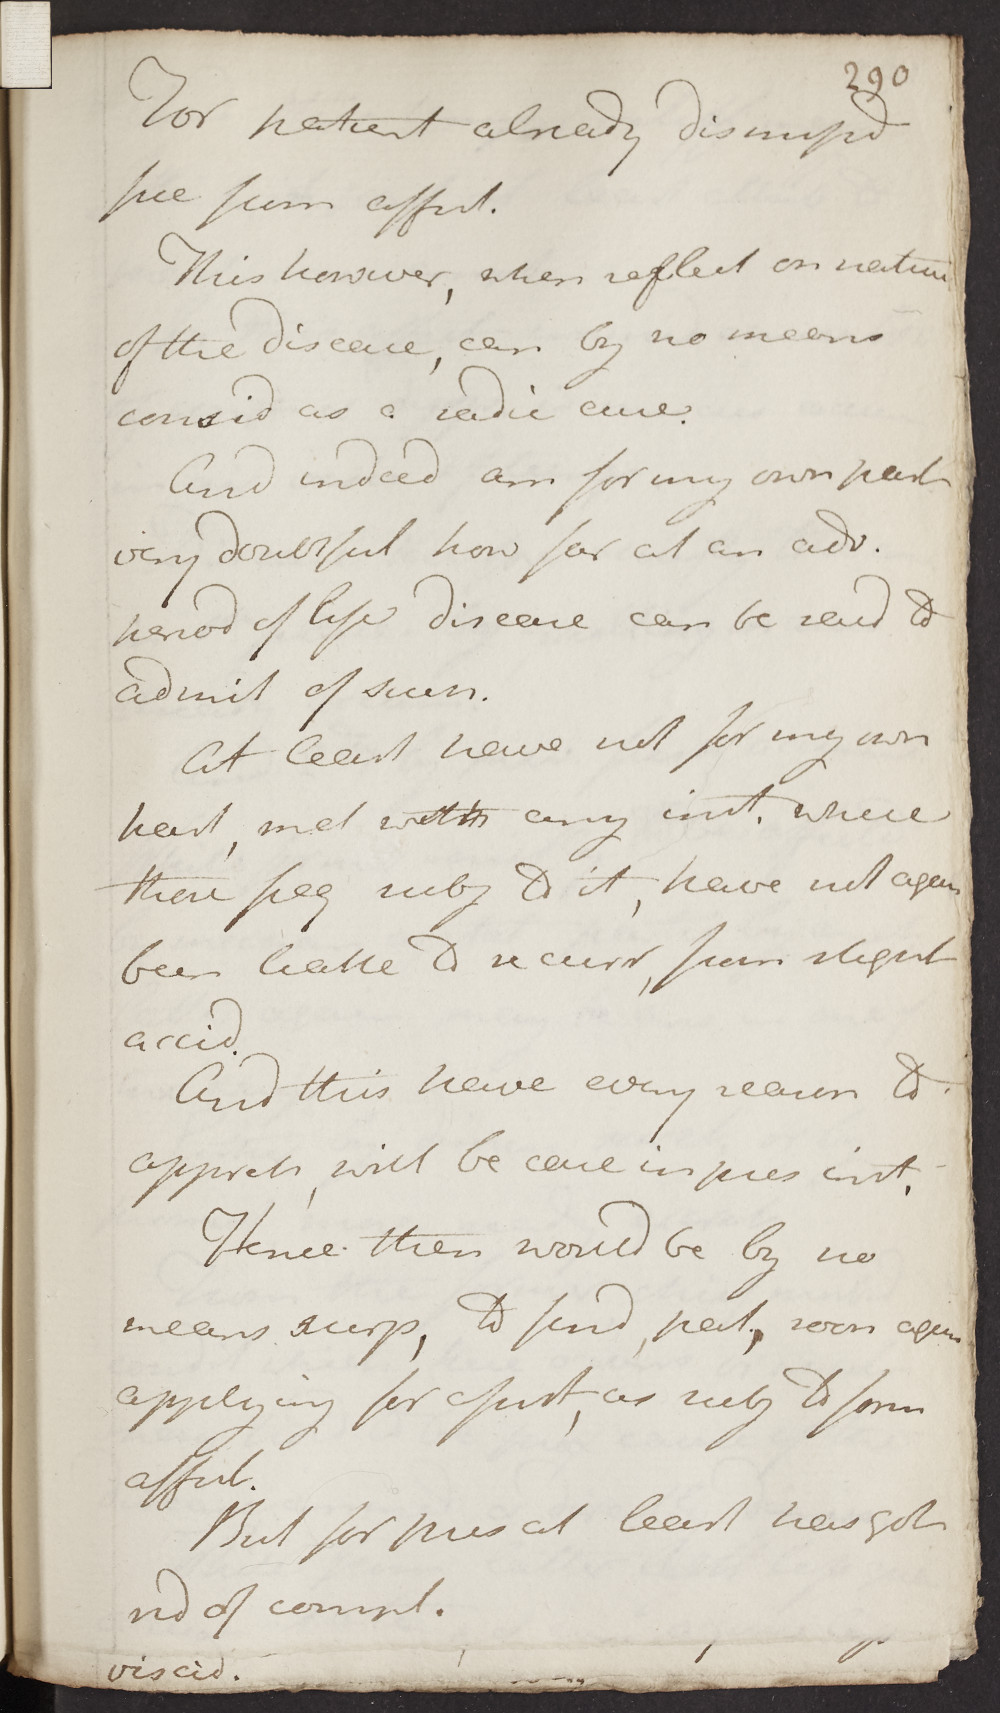 290
For patient already dismissd
free from affect.
This however, when reflect on nature
of the disease, can by no means
consid as a radic cure.
And indeed am for my own part
very doubtful how far at an adv.
period of life disease can be said to
admit of such.
At least have not for my own
part, met with any inst. where
those freq subj to it, have not again
been liable to recurr, from slight
accid.
And this have every reason to
appreh, will be case in pres inst.
Hence then would be by no
means surp, to find, pat, soon again
applying for assist, as subj to form
affect.
But for pres at least has got
rid of compl.
viscid.